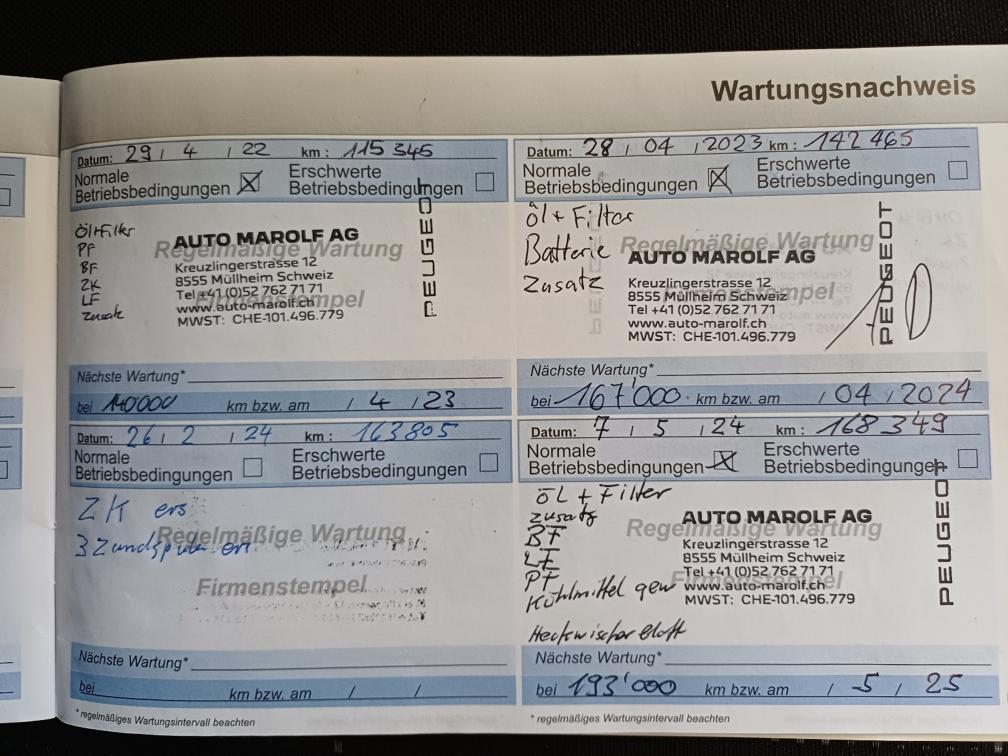 Wartungsnachweis
Datum: 29 / 4 / 22 km : 115 345
Normale
Betriebsbedingungen
Erschwerte
Betriebsbedingungen
Öl+Filter
PF
BF
ZK
LF
Zusatz
Regelmäßige Wartung
Firmenstempel
AUTO MAROLF AG
Kreuzlingerstrasse 12
8555 Müllheim Schweiz
Tel +41 (0)52 762 71 71
www.auto-marolf.ch
MWST: CHE-101.496.779
PEUGEOT
Nächste Wartung*
bei 140000 km bzw. am / 4 / 23
Datum: 28 / 04 / 2023 km : 142 465
Normale
Betriebsbedingungen
Erschwerte
Betriebsbedingungen
Öl + Filter
Batterie
Zusatz
Regelmäßige Wartung
Firmenstempel
AUTO MAROLF AG
Kreuzlingerstrasse 12
8555 Müllheim Schweiz
Tel +41 (0)52 762 71 71
www.auto-marolf.ch
MWST: CHE-101.496.779
PEUGEOT
Nächste Wartung*
bei 167'000 km bzw. am / 04 / 2024
Datum: 26 / 2 / 24 km : 163805
Normale
Betriebsbedingungen
Erschwerte
Betriebsbedingungen
ZK ers
3 Zündspulen ers
Regelmäßige Wartung
Firmenstempel
Nächste Wartung*
bei km bzw. am / /
* regelmäßiges Wartungsintervall beachten
Datum: 7 / 5 / 24 km : 168 349
Normale
Betriebsbedingungen
Erschwerte
Betriebsbedingungen
ÖL + Filter
Zusatz
BF
LF
PF
Kühlmittel gew
Heckwischerblatt
Regelmäßige Wartung
Firmenstempel
AUTO MAROLF AG
Kreuzlingerstrasse 12
8555 Müllheim Schweiz
Tel +41 (0)52 762 71 71
www.auto-marolf.ch
MWST: CHE-101.496.779
PEUGEOT
Nächste Wartung*
bei 193'000 km bzw. am / 5 / 25
* regelmäßiges Wartungsintervall beachten